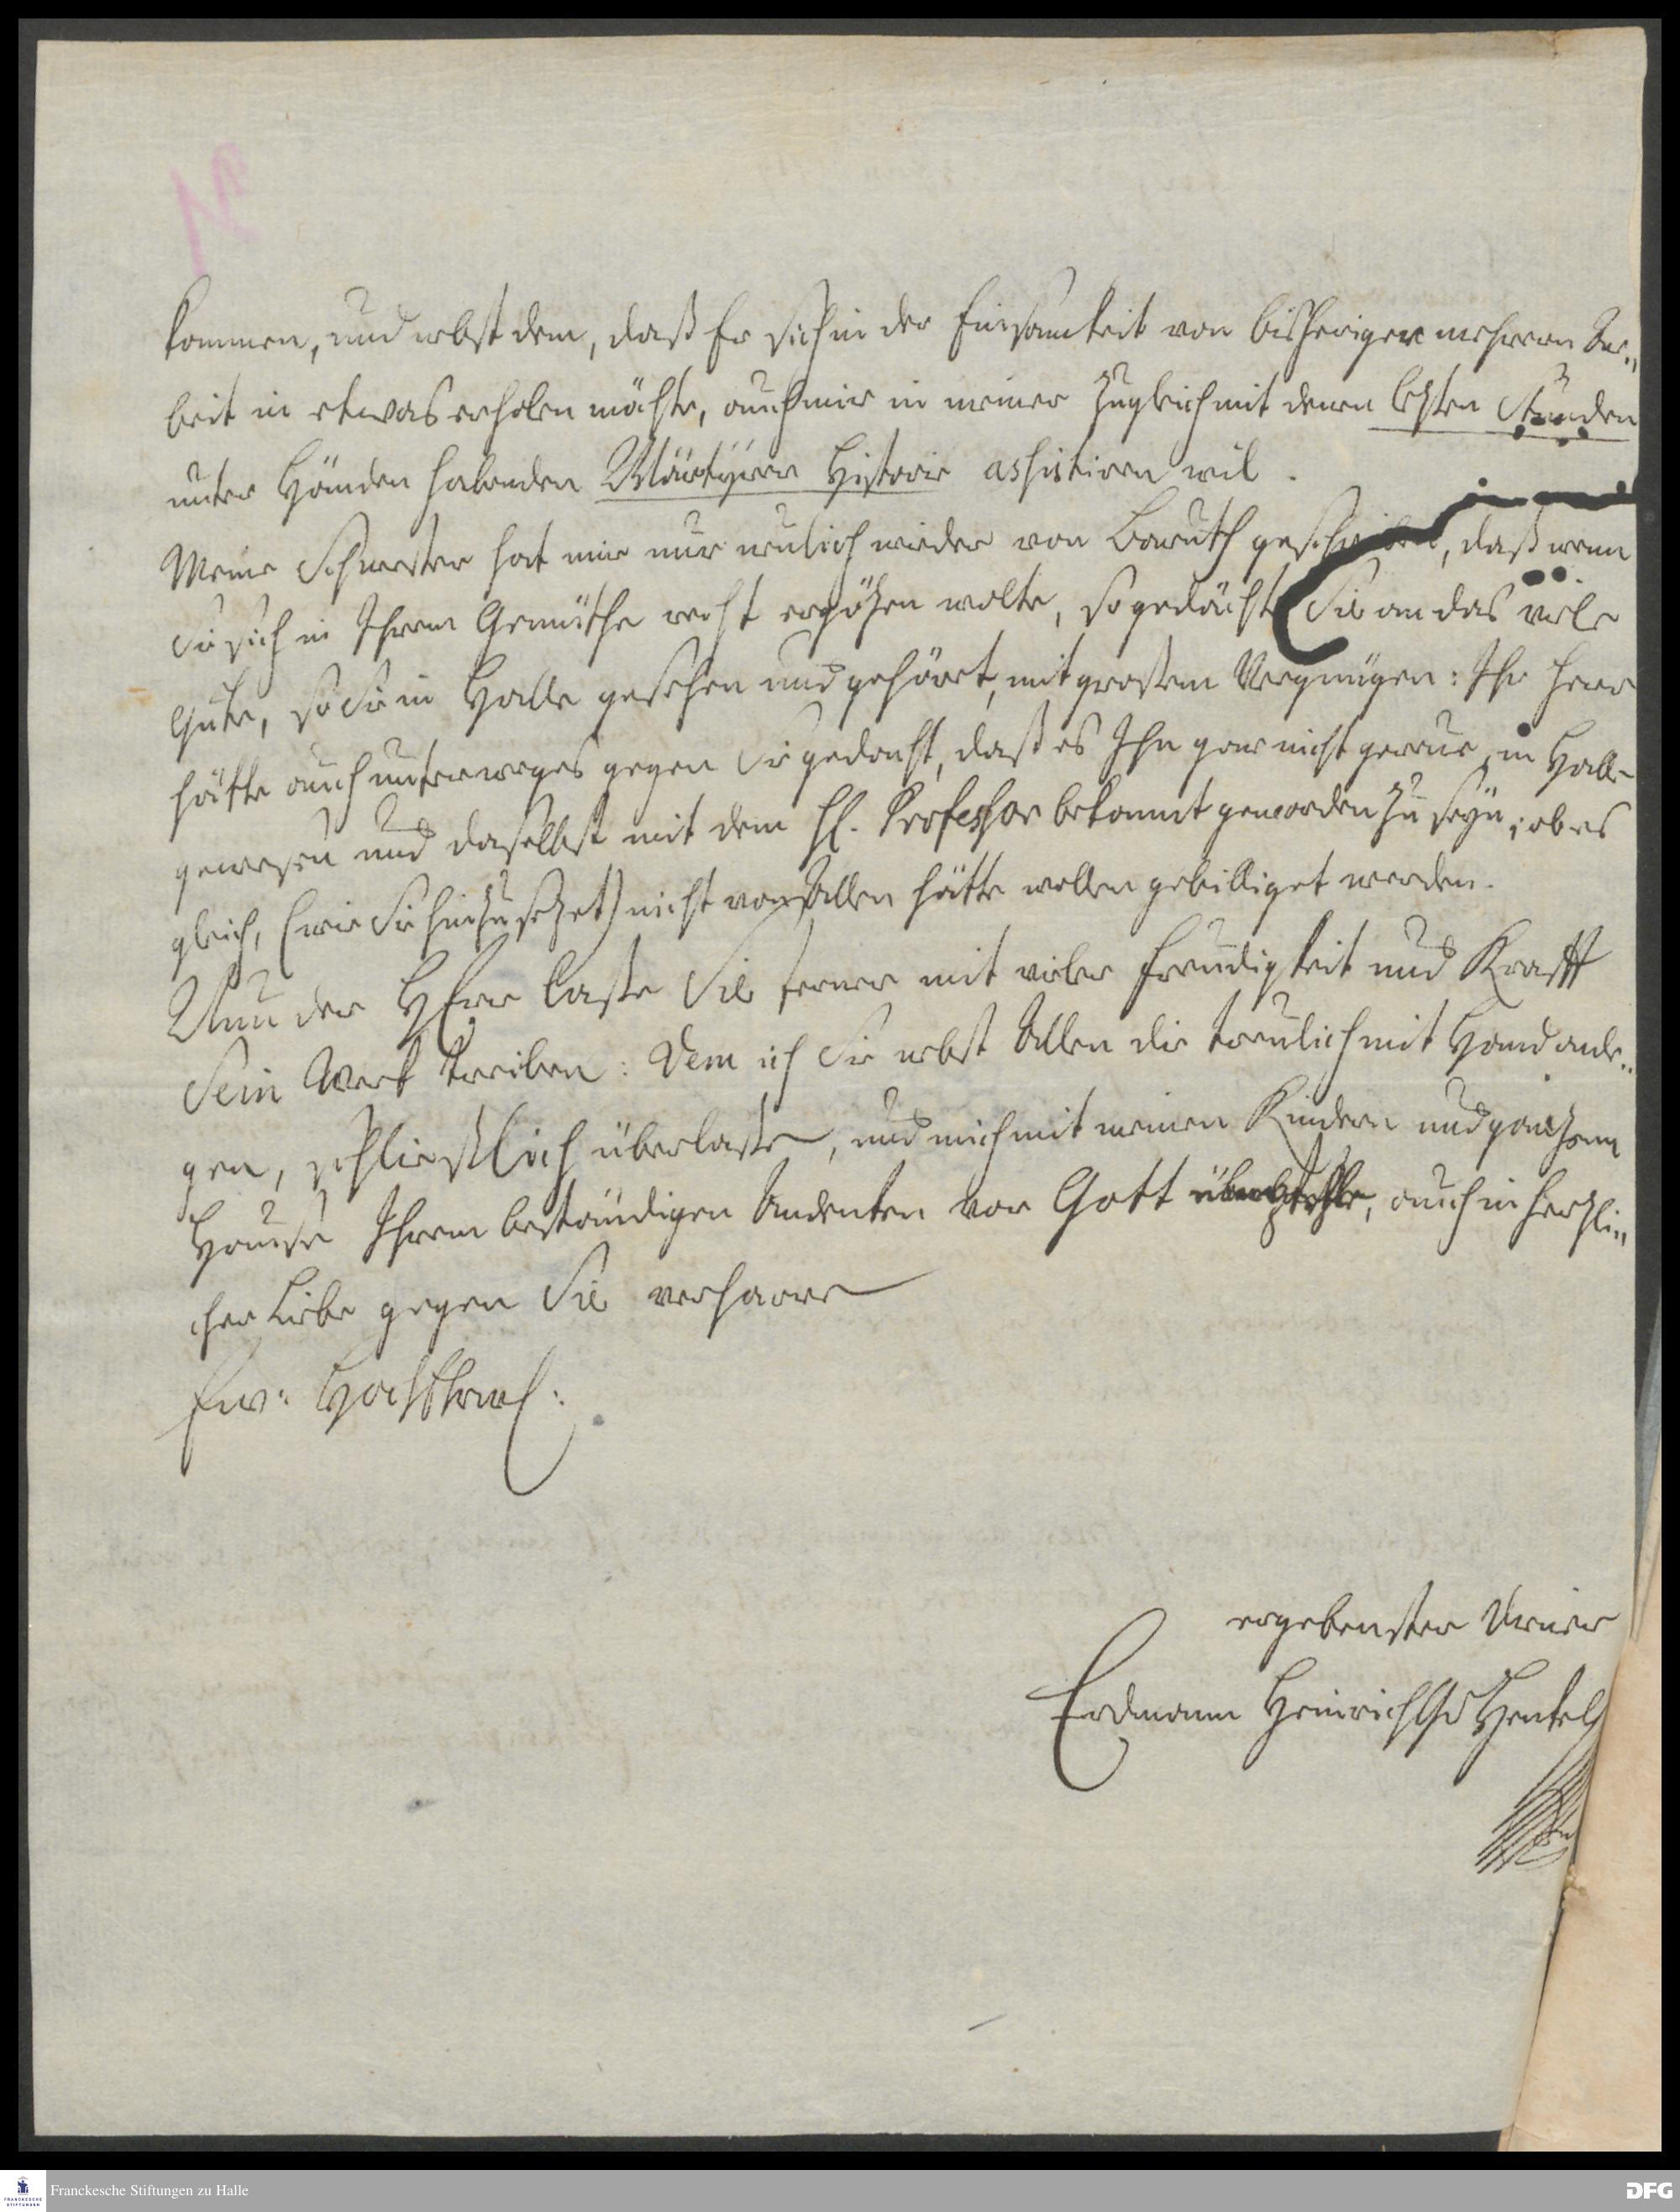 kommen, und nebst dem, daß Er sich in der Einsamkeit von bißheriger mehrern Ar„
beit in etwas erholen möchte, auch mir in meiner zugleich mit denen lezten Stunden
unter Händen habenden Märtyrer Historie assistiren wil.
Meine Schwester hat mir nur neulich wieder von Baruth geschrieben, daß wenn
Sie sich in Ihrem Gemüthe recht ergözen wolte, so gedächte Sie an das viele
Gute, so Sie in Halle gesehen und gehört, mit großem Vergnügen: Ihr Herr
hätte auch unterweges gegen Sie gedacht, daß es Ihn gar nicht gereue, in Halle
gewesen und daselbst mit dem H. Professor bekannt geworden zu seyn; ob es
gleich, (wie Sie hinzu sezet) nicht von Allen hätte wollen gebilliget werden.
Nun der HErr laße Sie ferner mit vieler Freudigkeit und Krafft
Sein Werk treiben: Dem ich Sie nebst Allen die treulich mit Hand anle„
gen, schließlich überlaße, und mich mit meinen Kindern und ganzem
Hause Ihrem beständigen Andenken vor Gott, auch in herzli„
cher Liebe gegen Sie verharre
Ew: HochEhrw:
ergebenster Diener
Erdmann Heinrich Gr Henkel
Franckesche Stiftungen zu Halle
FRANCKESCHE
STIFTUNGEN
DFG